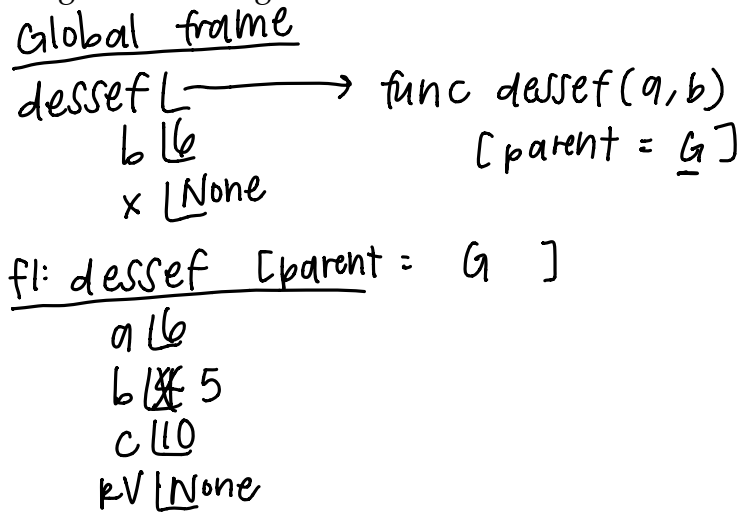 Global frame
dessef func dessef(a,b)
b 6 [parent = G]
x None
f1: dessef [parent = G ]
a 6
b 5
c 10
RV None